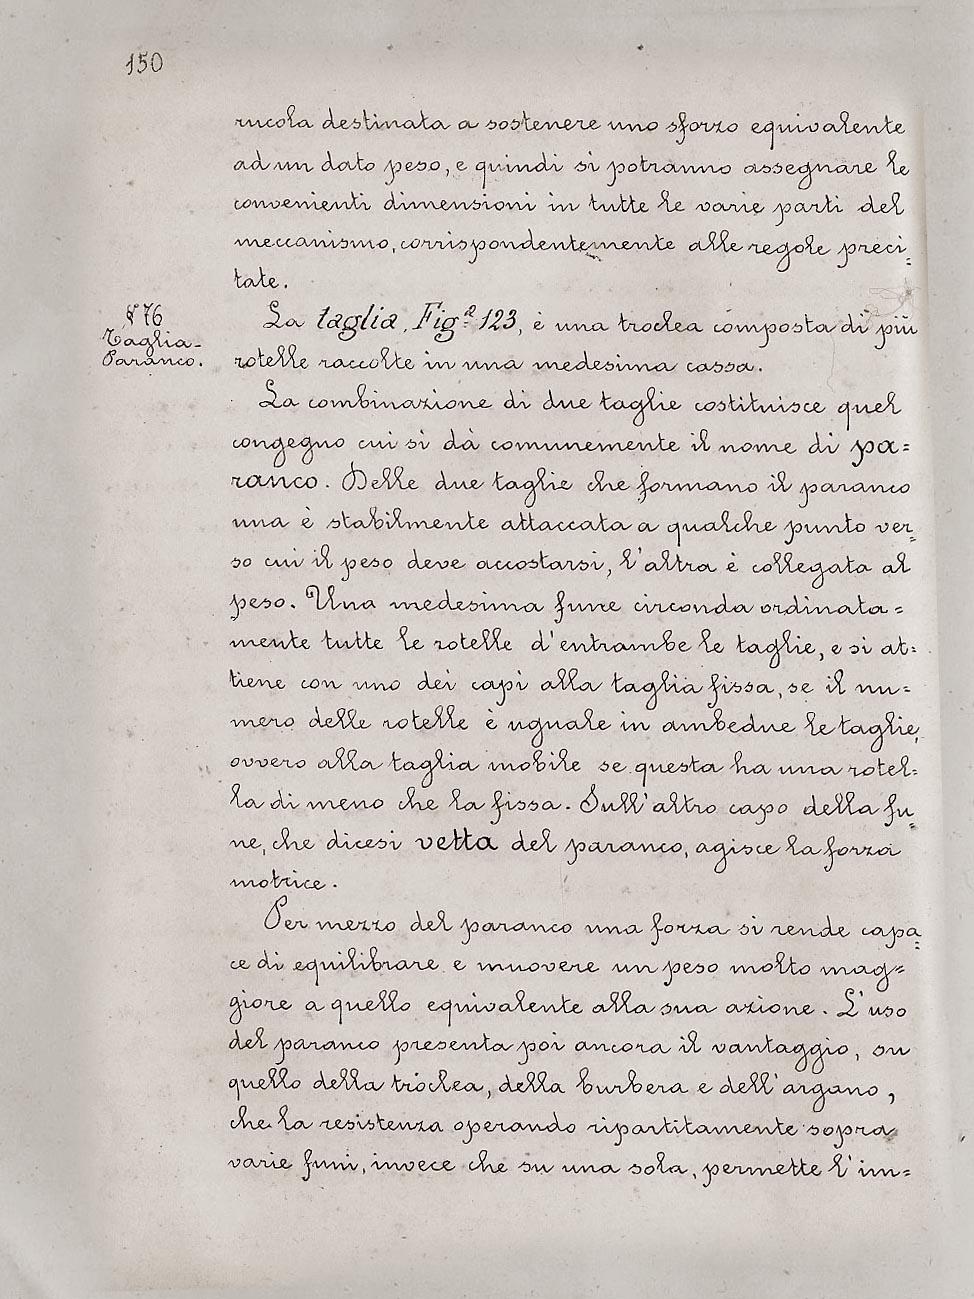 150
rucola destinata a sostenere uno sforzo equivalente
ad un dato peso, e quindi si potranno assegnare le
convenienti dimensioni in tutte le varie parti del
meccanismo, corrispondentemente alle regole preci=
tate.
§ 76
Taglia-
Paranco.
La taglia, Figª 123, è una troclea composta di più
rotelle raccolte in una medesima cassa.
La combinazione di due taglie costituisce quel
congegno cui si dà comunemente il nome di pa=
ranco. Delle due taglie che formano il paranco
una è stabilmente attaccata a qualche punto ver=
so cui il peso deve accostarsi, l'altra è collegata al
peso. Una medesima fune circonda ordinata=
mente tutte le rotelle d'entrambe le taglie, e si at=
tiene con uno dei capi alla taglia fissa, se il nu=
mero delle rotelle è uguale in ambedue le taglie,
ovvero alla taglia mobile se questa ha una rotel=
la di meno che la fissa. Sull'altro capo della fu=
ne, che dicesi vetta del paranco, agisce la forza
motrice.
Per mezzo del paranco una forza si rende capa=
ce di equilibrare e muovere un peso molto mag=
giore a quello equivalente alla sua azione. L'uso
del paranco presenta poi ancora il vantaggio, su
quello della troclea, della burbera e dell'argano,
che la resistenza operando ripartitamente sopra
varie funi, invece che su una sola, permette l'im=